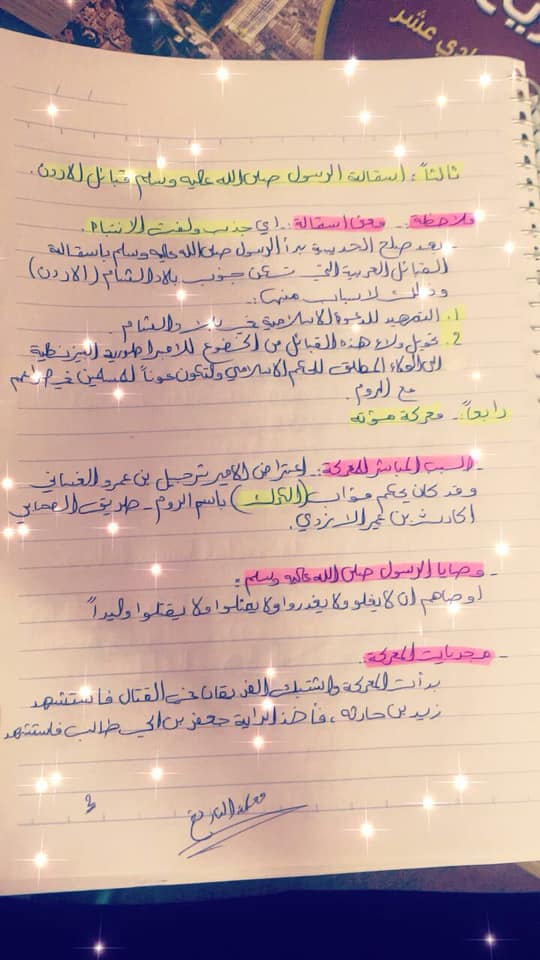 ادي عشر
ثالثاً: استمالة الرسول صلى الله عليه وسلم قبائل الاردن.
ملاحظة:- معنى استمالة: اي جذب ولفت الانتباه
- بعد صلح الحديبية بدأ الرسول صلى الله عليه وسلم باستمالة
القبائل العربية التي تسكن جنوب بلاد الشام (الاردن)
وذلك لاسباب منها:.
1. التمهيد للدعوة الاسلامية في بلاد الشام.
2. تحويل ولاء هذه القبائل من الخضوع للامبراطورية البيزنطية
الى الولاء المطلق للحكم الاسلامي ولتكون عوناً للمسلمين في صراعهم
مع الروم.
رابعاً:- معركة مؤته
- السبب المباشر للمعركة:- اعتراض الامير شرحبيل بن عمرو الغساني
وقد كان يحكم مؤاب (الكرك) باسم الروم - طريق الصحابي
الحارث بن عمير الازدي.
- وصايا الرسول صلى الله عليه وسلم:
اوصاهم ان لا يغلو ولا يغدروا ولا يمثلوا ولا يقتلوا وليداً
- مجريات المعركة.
بدأت المعركة واشتبك الفريقان في القتال فاستشهد
زيد بن حارثه، فأخذ الراية جعفر بن ابي طالب فاستشهد
3